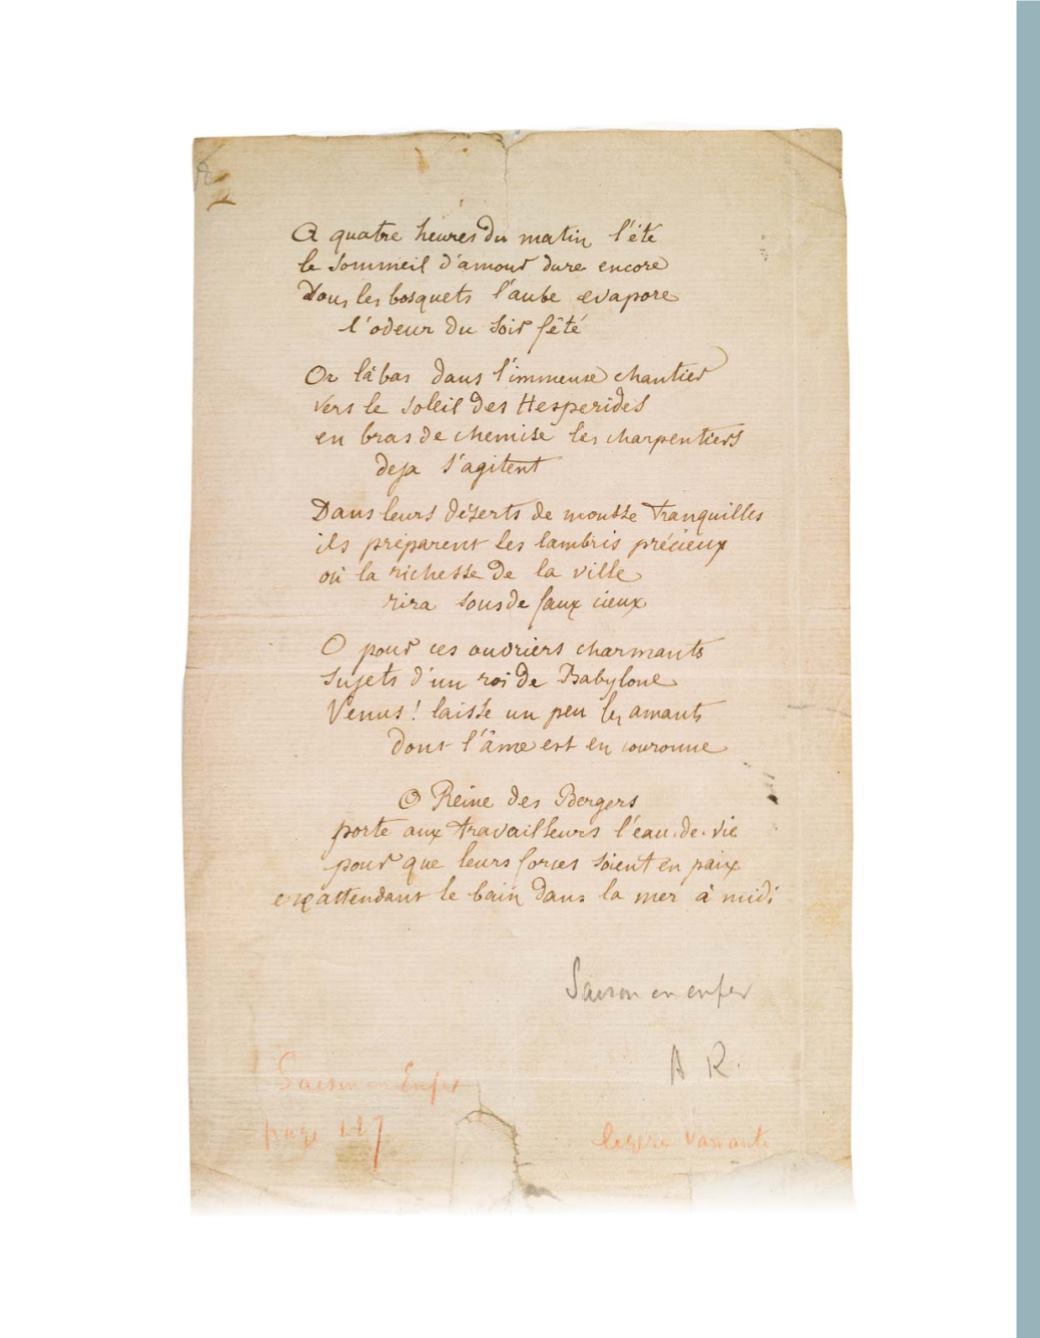 A quatre heures du matin l'été
le sommeil d'amour dure encore
Sous les bosquets l'aube evapore
l'odeur du soir fêté
Or làbas dans l'immense chantier
vers le soleil des Hesperides
en bras de chemise les charpentiers
deja s'agitent
Dans leurs déserts de mousse tranquilles
ils préparent les lambris précieux
où la richesse de la ville
rira sous de faux cieux
O pour ces ouvriers charmants
sujets d'un roi de Babylone
Venus ! laisse un peu les amants
dont l'âme est en couronne
O Reine des Bergers
porte aux travailleurs l'eau-de-vie
pour que leurs forces soient en paix
en attendant le bain dans la mer à midi
Saison en enfer
A R.
Saison en Enfer
page 117
légère variante